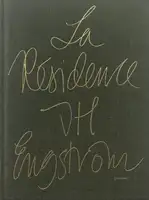 La
Résidence
JH
Engström